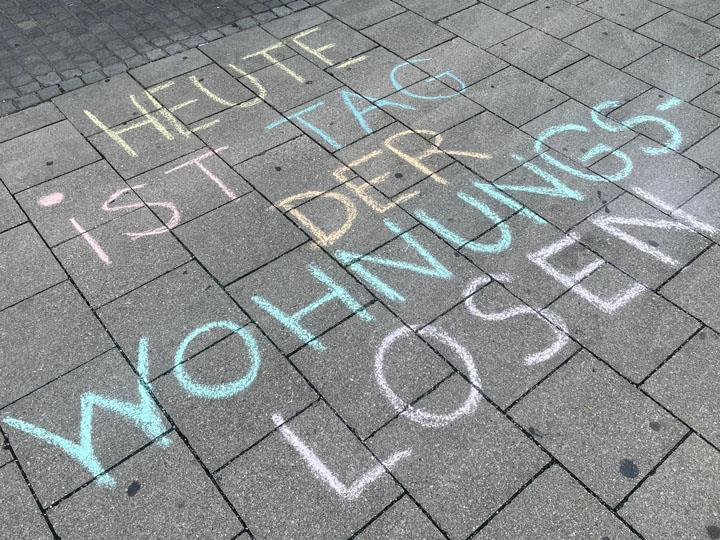 HEUTE
iST TAG
DER
WOHNUNGS-
LOSEN